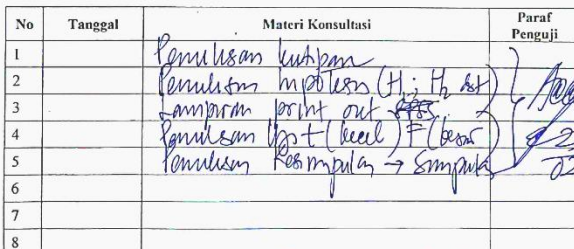 No Tanggal Materi Konsultasi Paraf Penguji
1 Penulisan kutipan
2 Penulisan hipotesis (H1; H2 dst)
3 Lampiran print out
4 Penulisan t (kecil) F (besar)
5 Penulisan Kesimpulan → Simpulan
6
7
8